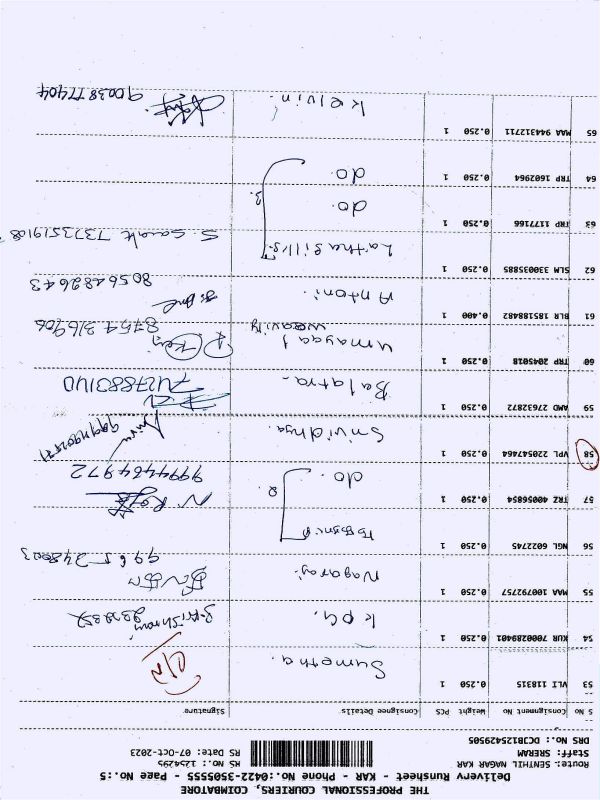 THE PROFESSIONAL COURIERS, COIMBATORE
Delivery Runsheet - KAR - Phone No.:0422-3505555 - Page No.:5
Route: SENTHIL NAGAR KAR
Staff: SRERAM RS No.: 1254295
DRS No.: DCJB12542950S RS Date: 07-Oct-2023
S No Consignment No Weight PCS Consignee Details Signature
53 VLI 118315 0.250 1 Sumetha.
54 KUR 7000289401 0.250 1 k pg. 222352
55 MAA 100792757 0.250 1 Nagaraj. 9965 248003
56 NGL 6022745 0.250 1
57 TRZ 40056854 0.250 1 do. 2 N Raja 9994464972
58 VPL 220547464 0.250 1 Srividhya.
59 AMD 27632872 0.250 1 Balatra. 7427883140
60 TRP 2045018 0.250 1 Umayaal weaving 8754316906
61 BLR 185188482 0.400 1 Antoni. 8056482643
62 SLM 330035885 0.250 1 Latha Silks. S. Sarak 7373519108
63 TRP 1177166 0.250 1 do. 3.
64 TRP 1602964 0.250 1 do.
65 MAA 944312711 0.250 1 kelvin. 9003877404